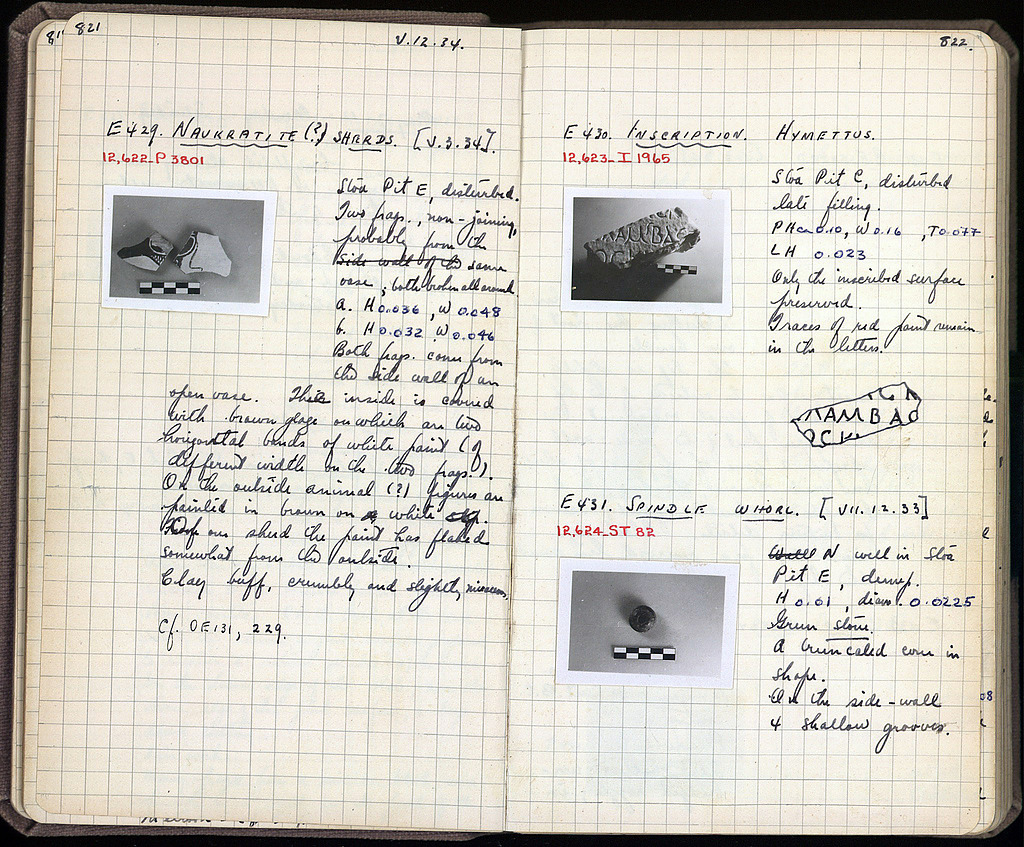 821
V.12.34.
E 429. NAUKRATITE (?) SHERDS. [V.3.34].
12,622-P 3801
Stoa Pit E, disturbed.
Two frags., non-joining,
probably from the
side wall of the same
vase; both broken all around.
a. H 0.036, W 0.048
b. H 0.032, W 0.046
Both frags. come from
the side wall of an
open vase. The inside is covered
with brown glaze on which are two
horizontal bands of white paint (of
different width on the two frags.).
On the outside animal (?) figures are
painted in brown on white
one sherd the paint has flaked
somewhat from the outside.
Clay buff, crumbly and slightly micaceous.
Cf. OE 131, 229.
822.
E 430. INSCRIPTION. HYMETTUS.
12,623-I 1965
Stoa Pit C, disturbed
late filling.
PH ca 0.10, W 0.16, T 0.077
LH 0.023
Only the inscribed surface
preserved.
Traces of red paint remain
in the letters.
AMBAC
E 431. SPINDLE WHORL. [VII.12.33]
12,624-ST 82
Well N well in Stoa
Pit E, dump.
H 0.01, diam. 0.0225
Green stone.
A truncated cone in
shape.
On the side-wall
4 shallow grooves.